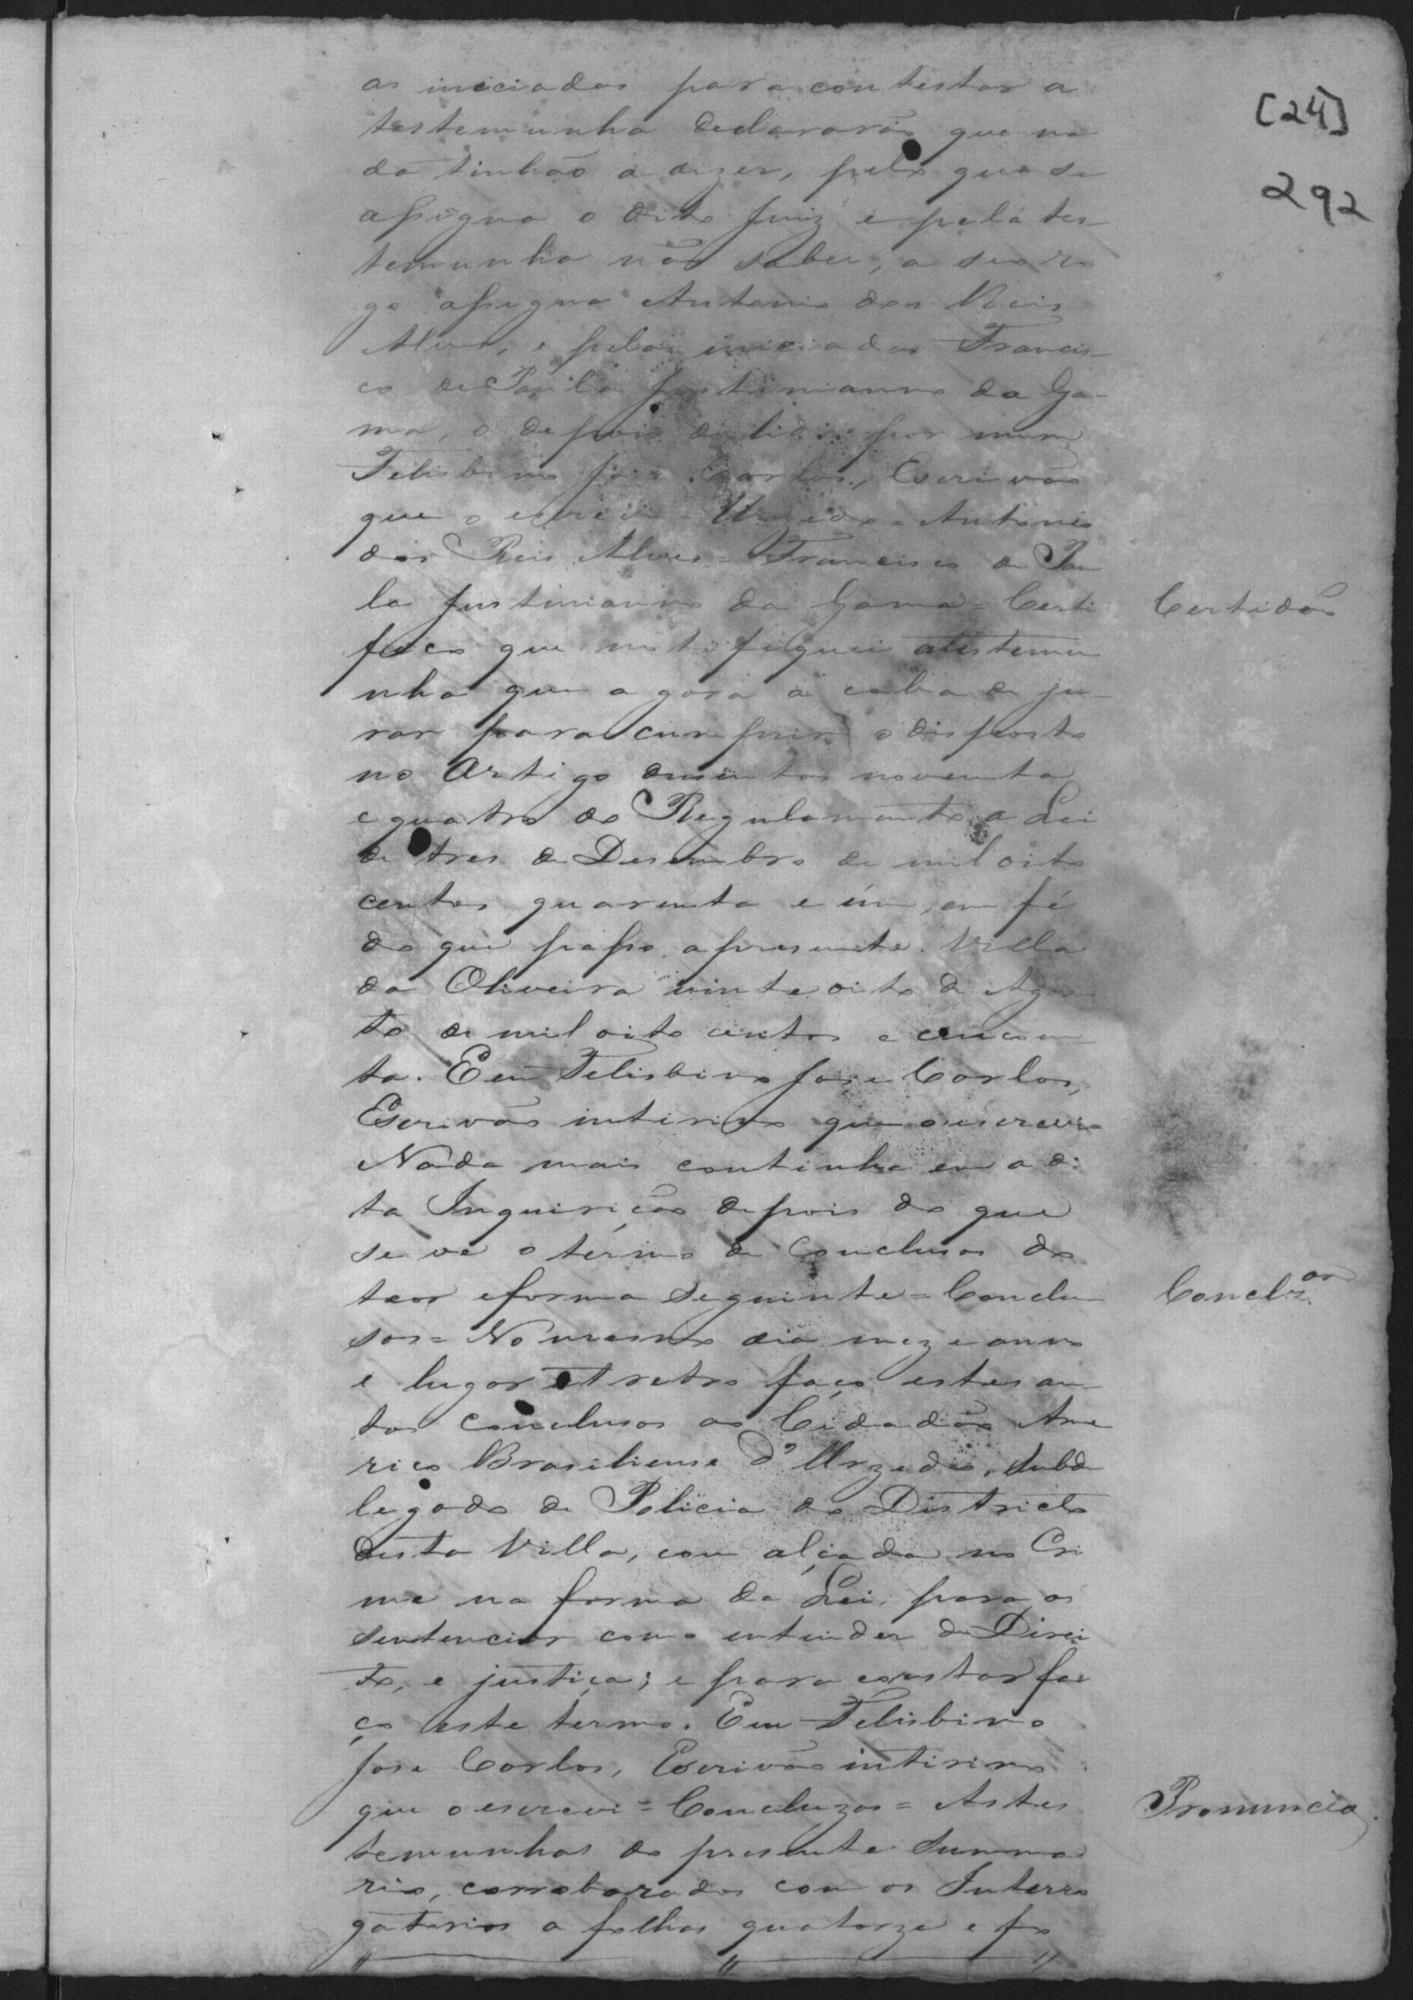 [24]
292
as iniciadas para contestar a
testemunha declararão que na
da tinhão a dizer, pelo que se
assigna o dito Juiz e pela tes-
temunha não saber, a seo ro
go assigna Antonio dos Reis
Alves, e pelos iniciados Francis-
co de Paula Justinianno da Ga-
ma, o depois de lido por mim
Felisbino Jose Carlos, Escrivão
que o escrevi = Urzedo = Antonio
dos Reis Alves = Francisco de Pau
la Justinianno da Gama = Certi
Certidão
fico que notifiquei atestemu
nha que agora a caba de ju-
rar para cumprir o disposto
no Artigo dusentos noventa
e quatro do Regulamento a Lei
de tres de Desembro de mil oito
centos quarenta e úm, em fé
do que passo apresente. Villa
da Oliveira vinte oito de Agos-
to de mil oito centos e cincoen
ta. E eu Felisbino Jose Carlos,
Escrivão intirino que oescrevi =
Nada mais continha em a di
ta Inquirição depois do que
se vê o termo de Conclusos do
teor eforma seguinte = Conclu-
Concl.os
sos = No mesmo dia mez e anno
e lugar retro faço estes au-
tos conclusos ao Cidadão Ame
rico Brasiliense d'Urzedo, Subde
legado de Policia do Districto
desta Villa, com alçada no Cri
me na forma da Lei, para os
sentenciar como entender de Direi
to, e justiça; e para constar fa
ço este termo. Eu Felisbino
Jose Carlos, Escrivão intirino
que o escrevi = Concluzos = As tes
Pronuncia
temunhas do presente Summa
rio, corroborados com os Interro
gatorios a folhas quatorze e fo